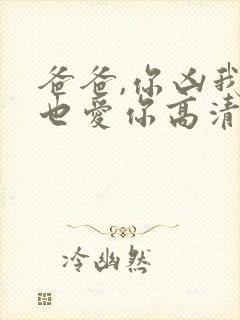 爸爸,你凶我
也爱你高清
冷幽然